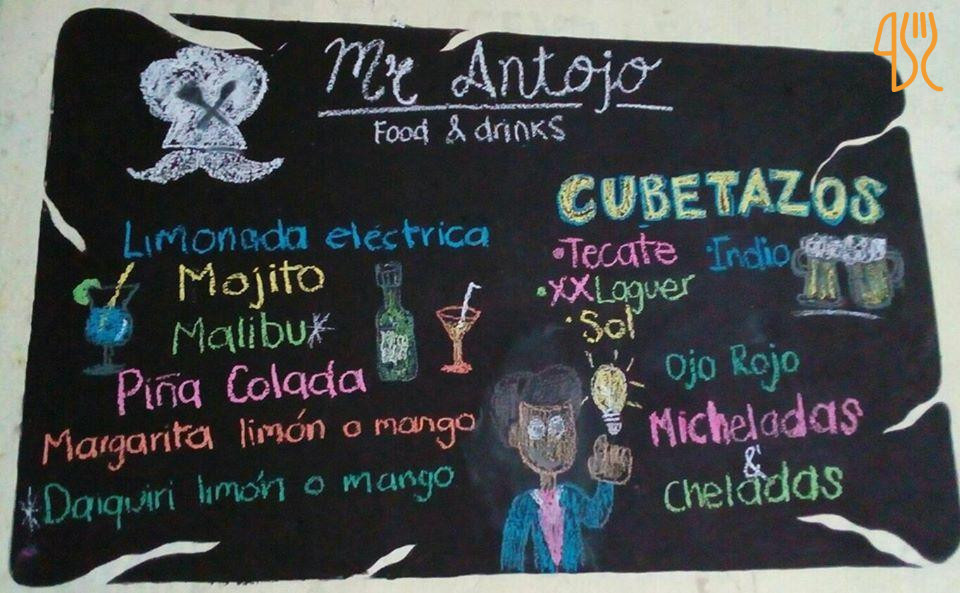 Mr Antojo
Food & drinks
Limonada eléctrica
Mojito
Malibu*
Piña Colada
Margarita limón o mango
*Daiquiri limón o mango
CUBETAZOS
•Tecate •Indio
•XX Laguer
•Sol
Ojo Rojo
Micheladas
&
Cheladas